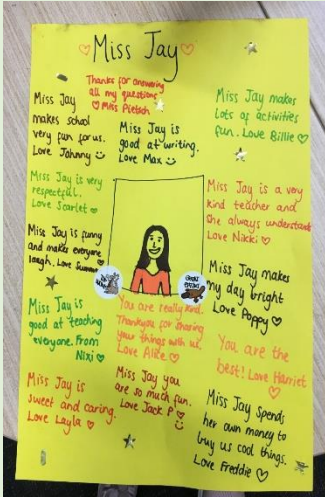 Miss Jay
Thanks for answering
all my questions
Miss Pietsch
Miss Jay
makes school
very fun for us.
Love Johnny
Miss Jay is
good at writing.
Love Max
Miss Jay makes
lots of activities
fun. Love Billie
Miss Jay is very
respectful.
Love Scarlet
Miss Jay is a very
kind teacher and
she always understand
Love Nikki
Miss Jay is funny
and makes everyone
laugh. Love Summer
Miss Jay makes
my day bright
Love Poppy
Miss Jay is
good at teaching
everyone. From
Nixi
You are really kind.
Thankyou for sharing
your things with us.
Love Alice
You are the
best! Love Harriet
Miss Jay is
sweet and caring.
Love Layla
Miss Jay you
are so much fun.
Love Jack P
Miss Jay Spends
her own money to
buy us cool things.
Love Freddie